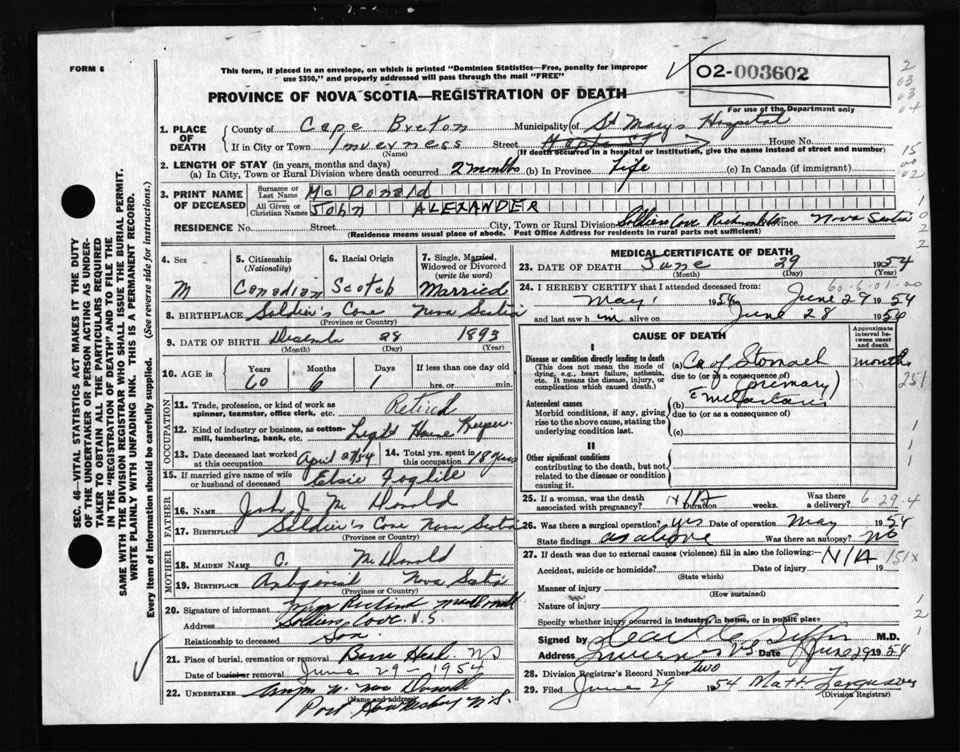 FORM 6
This form, if placed in an envelope, on which is printed "Dominion Statistics—Free, penalty for improper
use $300," and properly addressed will pass through the mail "FREE"
O2-003602
PROVINCE OF NOVA SCOTIA—REGISTRATION OF DEATH
For use of the Department only
1. PLACE OF DEATH County of Cape Breton Municipality of St Mary's Hospital
If in City or Town Inverness Street House No.
(Name) (If death occurred in a hospital or institution, give the name instead of street and number)
2. LENGTH OF STAY (in years, months and days)
(a) In City, Town or Rural Division where death occurred 2 months (b) In Province Life (c) In Canada (if immigrant)
3. PRINT NAME OF DECEASED Surname or Last Name Mc Donald
All Given or Christian Names JOHN ALEXANDER
RESIDENCE No. Street City, Town or Rural Division Soldiers Cove Richmond Province Nova Scotia
(Residence means usual place of abode. Post Office Address for residents in rural parts not sufficient)
4. Sex M
5. Citizenship (Nationality) Canadian
6. Racial Origin Scotch
7. Single, Married, Widowed or Divorced (write the word) Married
8. BIRTHPLACE Soldier's Cove Nova Scotia
(Province or Country)
9. DATE OF BIRTH 28 1893
(Month) (Day) (Year)
10. AGE in Years 60 Months 6 Days 1 If less than one day old hrs. or min.
OCCUPATION
11. Trade, profession or kind of work as spinner, teamster, office clerk, etc. Retired
12. Kind of industry or business, as cotton-mill, lumbering, bank, etc. Light House Keeper
13. Date deceased last worked at this occupation April 27/54
14. Total yrs. spent in this occupation 18 years
15. If married give name of wife or husband of deceased Elsie
FATHER
16. Name John J. Mc Donald
17. Birthplace Soldier's Cove Nova Scotia
(Province or Country)
MOTHER
18. MAIDEN NAME C. McDonald
19. BIRTHPLACE Antigonish Nova Scotia
(Province or Country)
20. Signature of informant
Address Soldiers Cove N.S.
Relationship to deceased Son
21. Place of burial, cremation or removal N.S
Date of burial or removal June 29-1954
22. UNDERTAKER
(Name and address)
Port Hawkesbury N.S.
MEDICAL CERTIFICATE OF DEATH
23. DATE OF DEATH June 29 1954
(Month) (Day)
60-6-01-00
24. I HEREBY CERTIFY that I attended deceased from:
May 1 1954 to June 29 1954
and last saw him alive on June 28 1954
CAUSE OF DEATH
Approximate interval between onset and death
I
Disease or condition directly leading to death
(This does not mean the mode of dying, e.g., heart failure, asthenia, etc. It means the disease, injury, or complication which caused death.)
(a) Ca of Stomach months
due to (or as a consequence of)
(primary)
Antecedent causes
Morbid conditions, if any, giving rise to the above cause, stating the underlying condition last.
(b)
due to (or as a consequence of)
(c)
II
Other significant conditions
contributing to the death, but not related to the disease or condition causing it.
25. If a woman, was the death associated with pregnancy? N/A Duration weeks. Was there a delivery? 6-29-4
26. Was there a surgical operation? yes Date of operation May 1954
State findings as above Was there an autopsy? No
27. If death was due to external causes (violence) fill in also the following:— N/A 151x
Accident, suicide or homicide? Date of injury 19
(State which)
Manner of injury
(How sustained)
Nature of injury
Specify whether injury occurred in industry, in home, or in public place
Signed by M.D.
Address Inverness N.S. Date June 29 1954
28. Division Registrar's Record Number two
29. Filed June 29 1954 Matt Ferguson
(Division Registrar)
SEC. 46—VITAL STATISTICS ACT MAKES IT THE DUTY
OF THE UNDERTAKER OR PERSON ACTING AS UNDER-
TAKER TO OBTAIN ALL THE PARTICULARS REQUIRED
IN THE "REGISTRATION OF DEATH" AND TO FILE THE
SAME WITH THE DIVISION REGISTRAR WHO SHALL ISSUE THE BURIAL PERMIT.
WRITE PLAINLY WITH UNFADING INK. THIS IS A PERMANENT RECORD.
Every item of information should be carefully supplied. (See reverse side for instructions.)